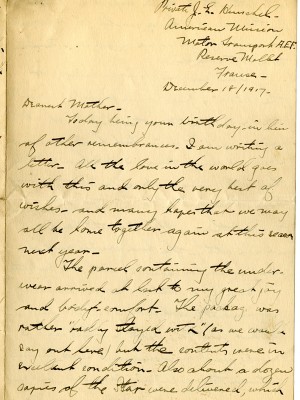 Private J. E.
American Mission
Motor Transport A.E.F.
Reserve Mallet
France -
December 18/1917.
Dearest Mother -
Today being your birthday - in lieu
of other remembrances I am writing a
letter. All the love in the world goes
with this and only the very best of
wishes - and many hopes that we may
all be home together again at this season
next year -
The parcel containing the under-
wear arrived at last to my great joy
and bodily comfort. The package was
rather (as we
say out here) but the contents were in
excellent condition. Also about a dozen
copies of the Star were delivered, which